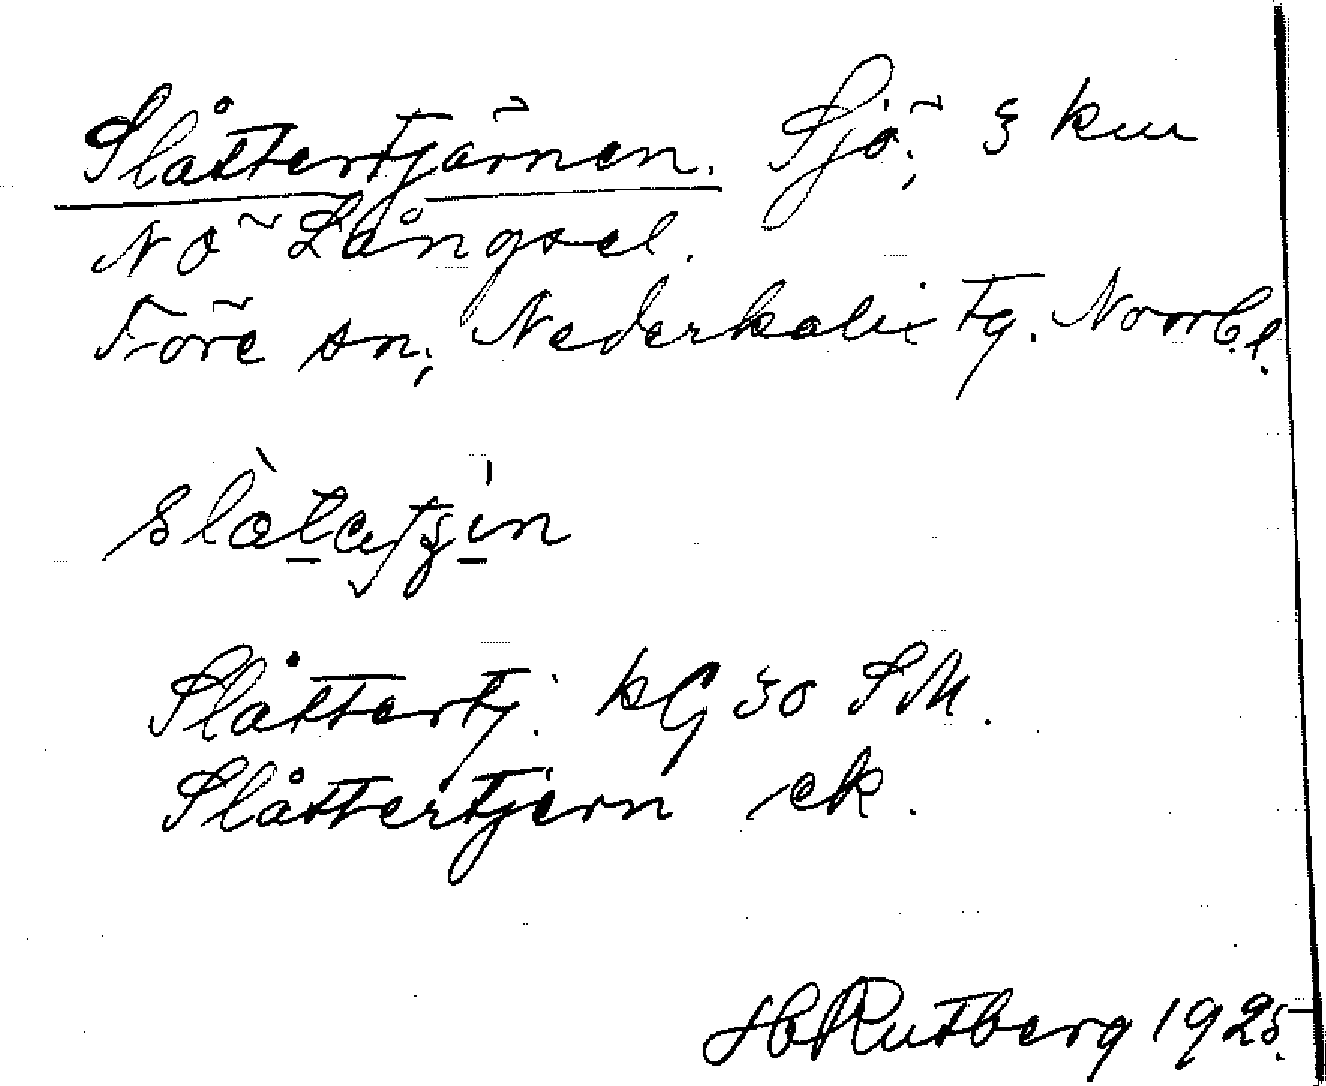 Slåttertjärnen. Sjö, 3 km
NÖ Långsel.
Före sn; Nederkalix tg. Norrb.l.
Slåttertj. kG 30 SM.
Slåttertjern ek.
H Rutberg 1925.